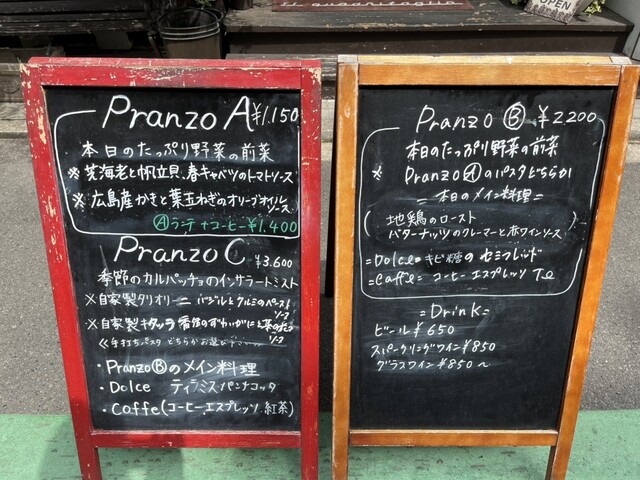 Pranzo A ¥1.150
本日のたっぷり野菜の前菜
※ 芝海老と帆立貝、春キャベツのトマトソース
※ 広島産かきと葉玉ねぎのオリーブオイルソース
Ⓐランチ+コーヒー¥1.400
Pranzo C ¥3.600
季節のカルパッチョのインサラートミスト
※自家製タリオリーニ バジルとクルミのペーストソース
※自家製キタッラ 香住のずわいがにと菜の花のソース
《手打ちパスタ どちらかお選び
・Pranzo Ⓑのメイン料理
・Dolce ティラミス パンナコッタ
・Caffe(コーヒー.エスプレッソ.紅茶)
Pranzo Ⓑ ¥2200
本日のたっぷり野菜の前菜
※ Pranzo Ⓐのパスタどちらか
=本日のメイン料理=
地鶏のロースト
バターナッツのクレーマーと赤ワインソース
=Dolce= キビ糖のセミフレッド
=Caffe= コーヒー エスプレッソ Te
=Drink=
ビール¥650
スパークリングワイン¥850
グラスワイン¥850〜
OPEN